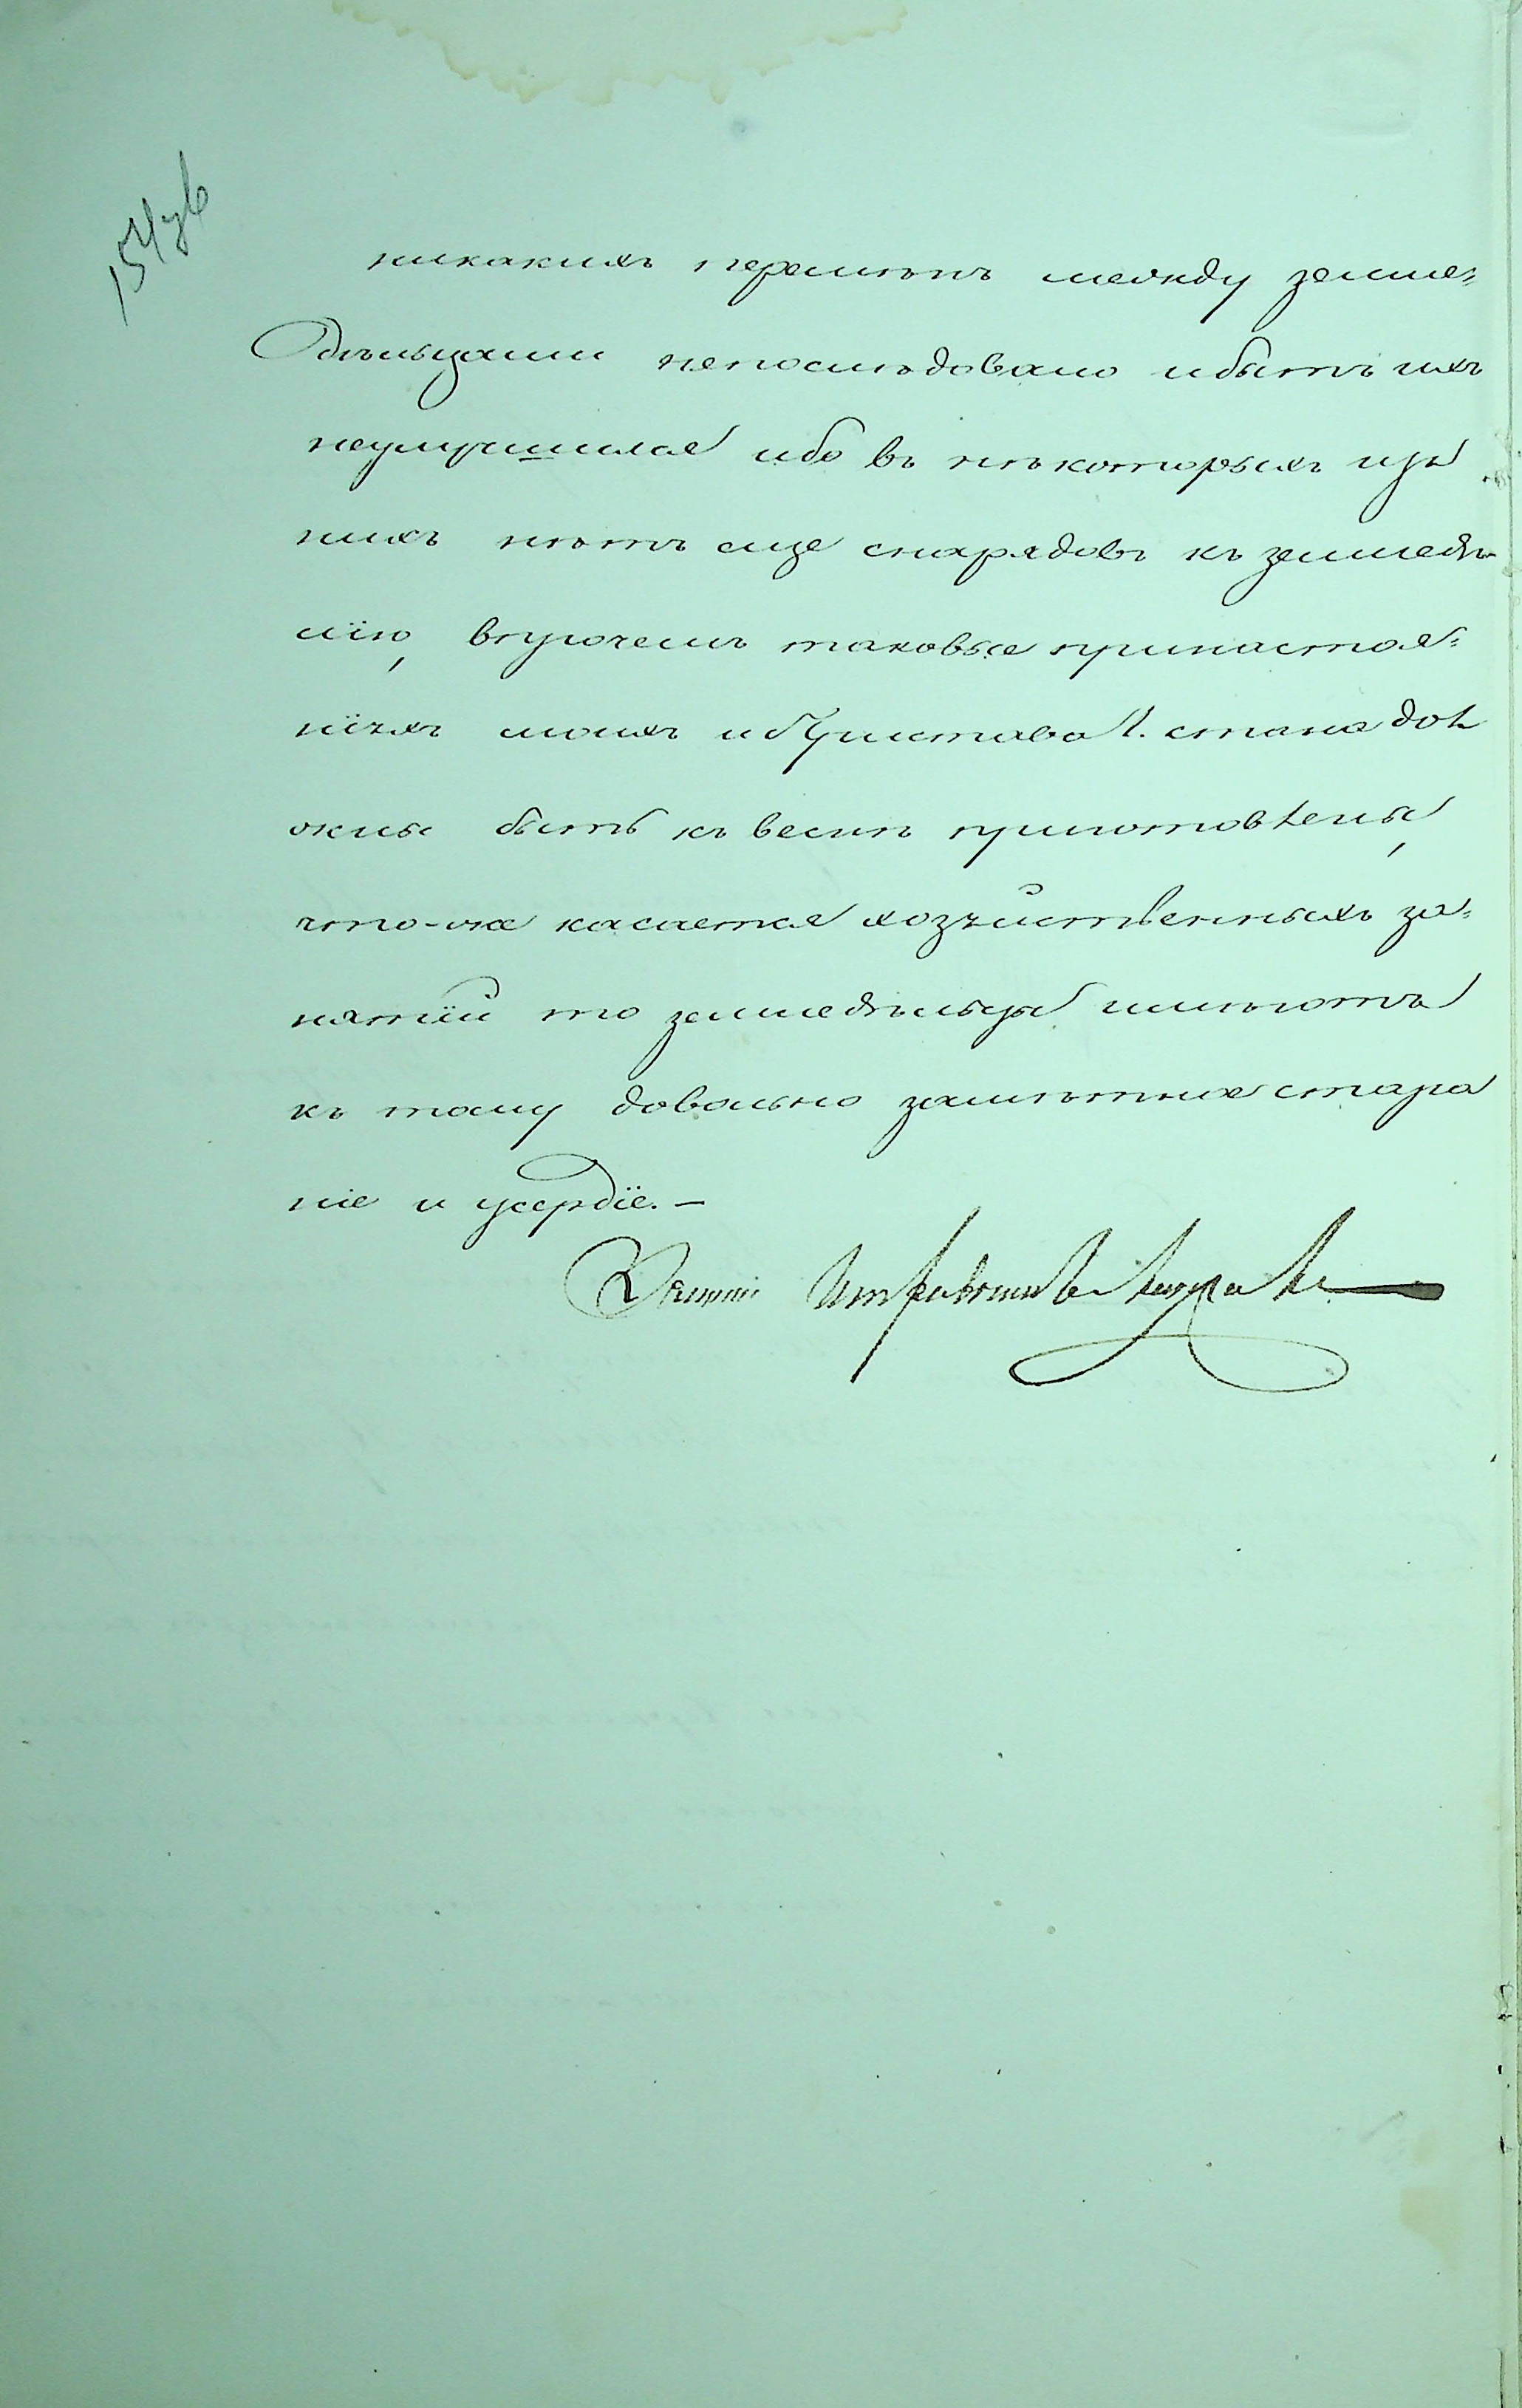 154 об
никакихъ перемѣнъ между земле=
дѣльцами непослѣдовало и бытъ ихъ
неулучшился ибо въ нѣкоторыхъ изъ
нихъ нѣтъ еще снарядовъ къ земледѣ
лію, впрочемъ таковые принастоя=
ніяхъ моихъ и Пристава 1. стана дол
жны быть къ веснѣ приготовлены,
что-же касается хозяйственныхъ за=
нятій то земледѣльцы имѣютъ
къ тому довольно замѣтное стара
ніе и усердіе.—